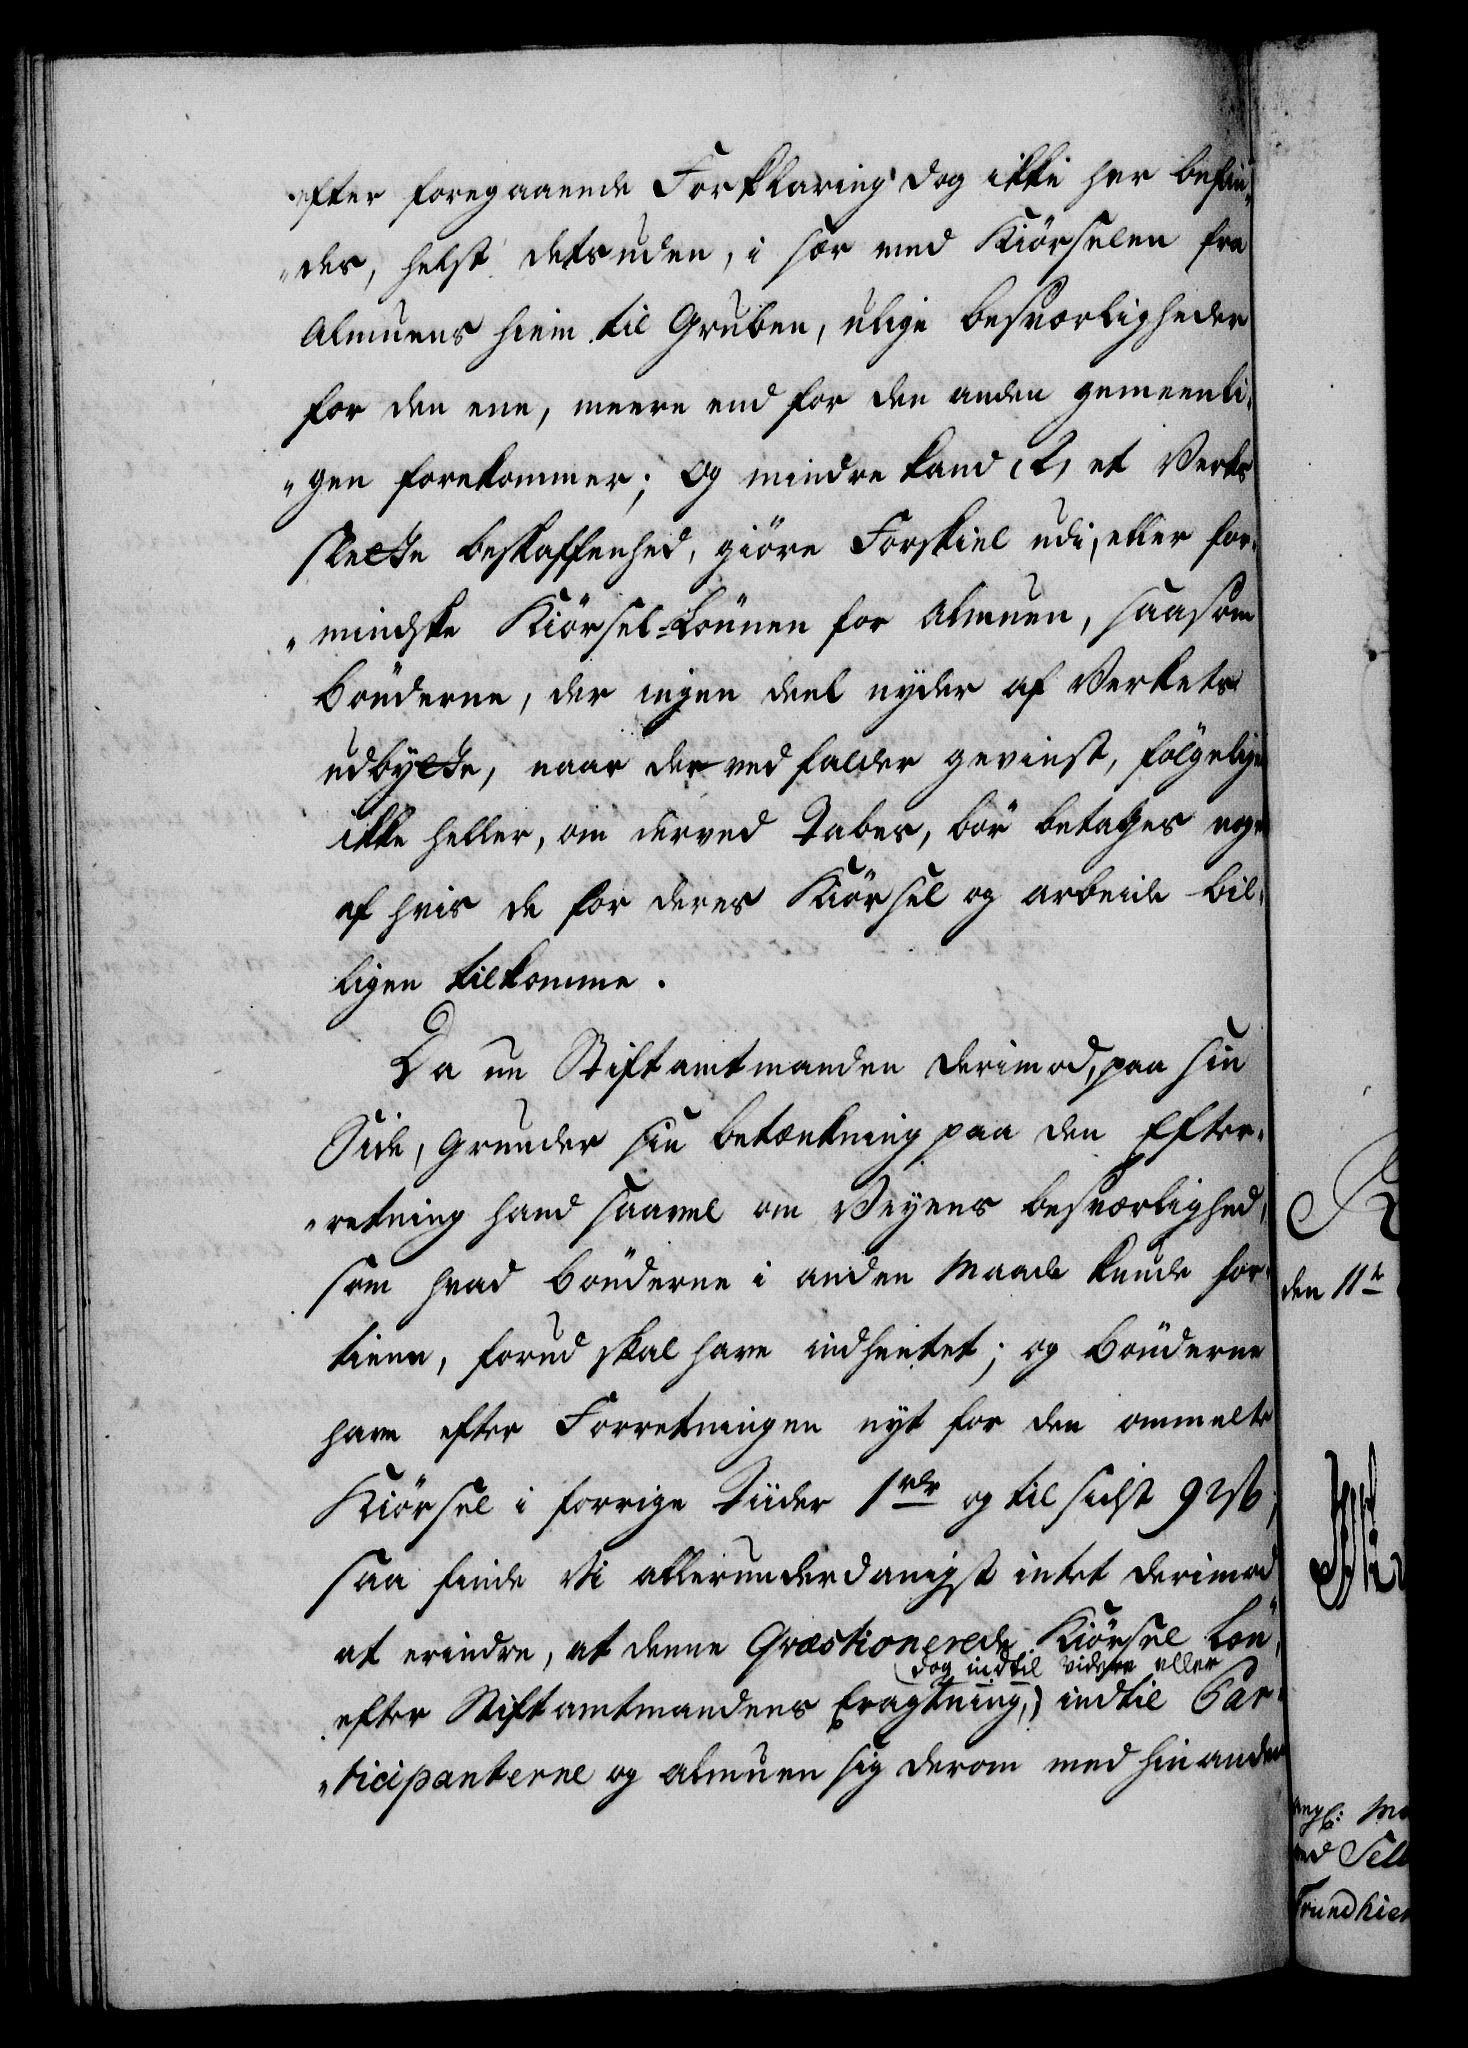 efter foregaaende Forklaring dog ikke her befin„
„des, helst detsuden, i sær med Kiörselen fra
Almuens hiem til Gruben, ulige besværligheder
for den ene, meere end for den anden gemeenli„
„gen forekommer; Og mindre kand et Verks
slette beskaffenhed, giöre Forskiel udi, eller for„
„mindske Kiörsel-Lönnen for Almuen, saasom
Bönderne, der ingen deel nyder af Verkets
udbytte, naar derved falder gevinst, fölgelig
ikke heller, om derved Tabes, bör betages noget
af hvis de for deres Kiörsel og arbeide bil„
ligen tilkomme.
Da nu Stiftamtmanden derimod, paa sin
Side, Grunder sin betænkning paa den Efter„
„retning hand saavel om Veyens besværlighed,
som hvad Bönderne i anden Maade kunde for„
tiene, forud skal have indhentet; og Bönderne
have efter Forretningen nyt for den ommelte
Kiörsel i forrige Tiider 1 rdr og til sidst 92 s;
saa finde Vi allerunderdanigst intet derimod
at erindre, at denne Qvæstionerede Kiörsel Lön,
(dog indtil videre eller
efter Stiftamtmandens Eragtning,) indtil Par„
„ticipanterne og Almuen sig derom med hinanden
den 11te
Trundhiem